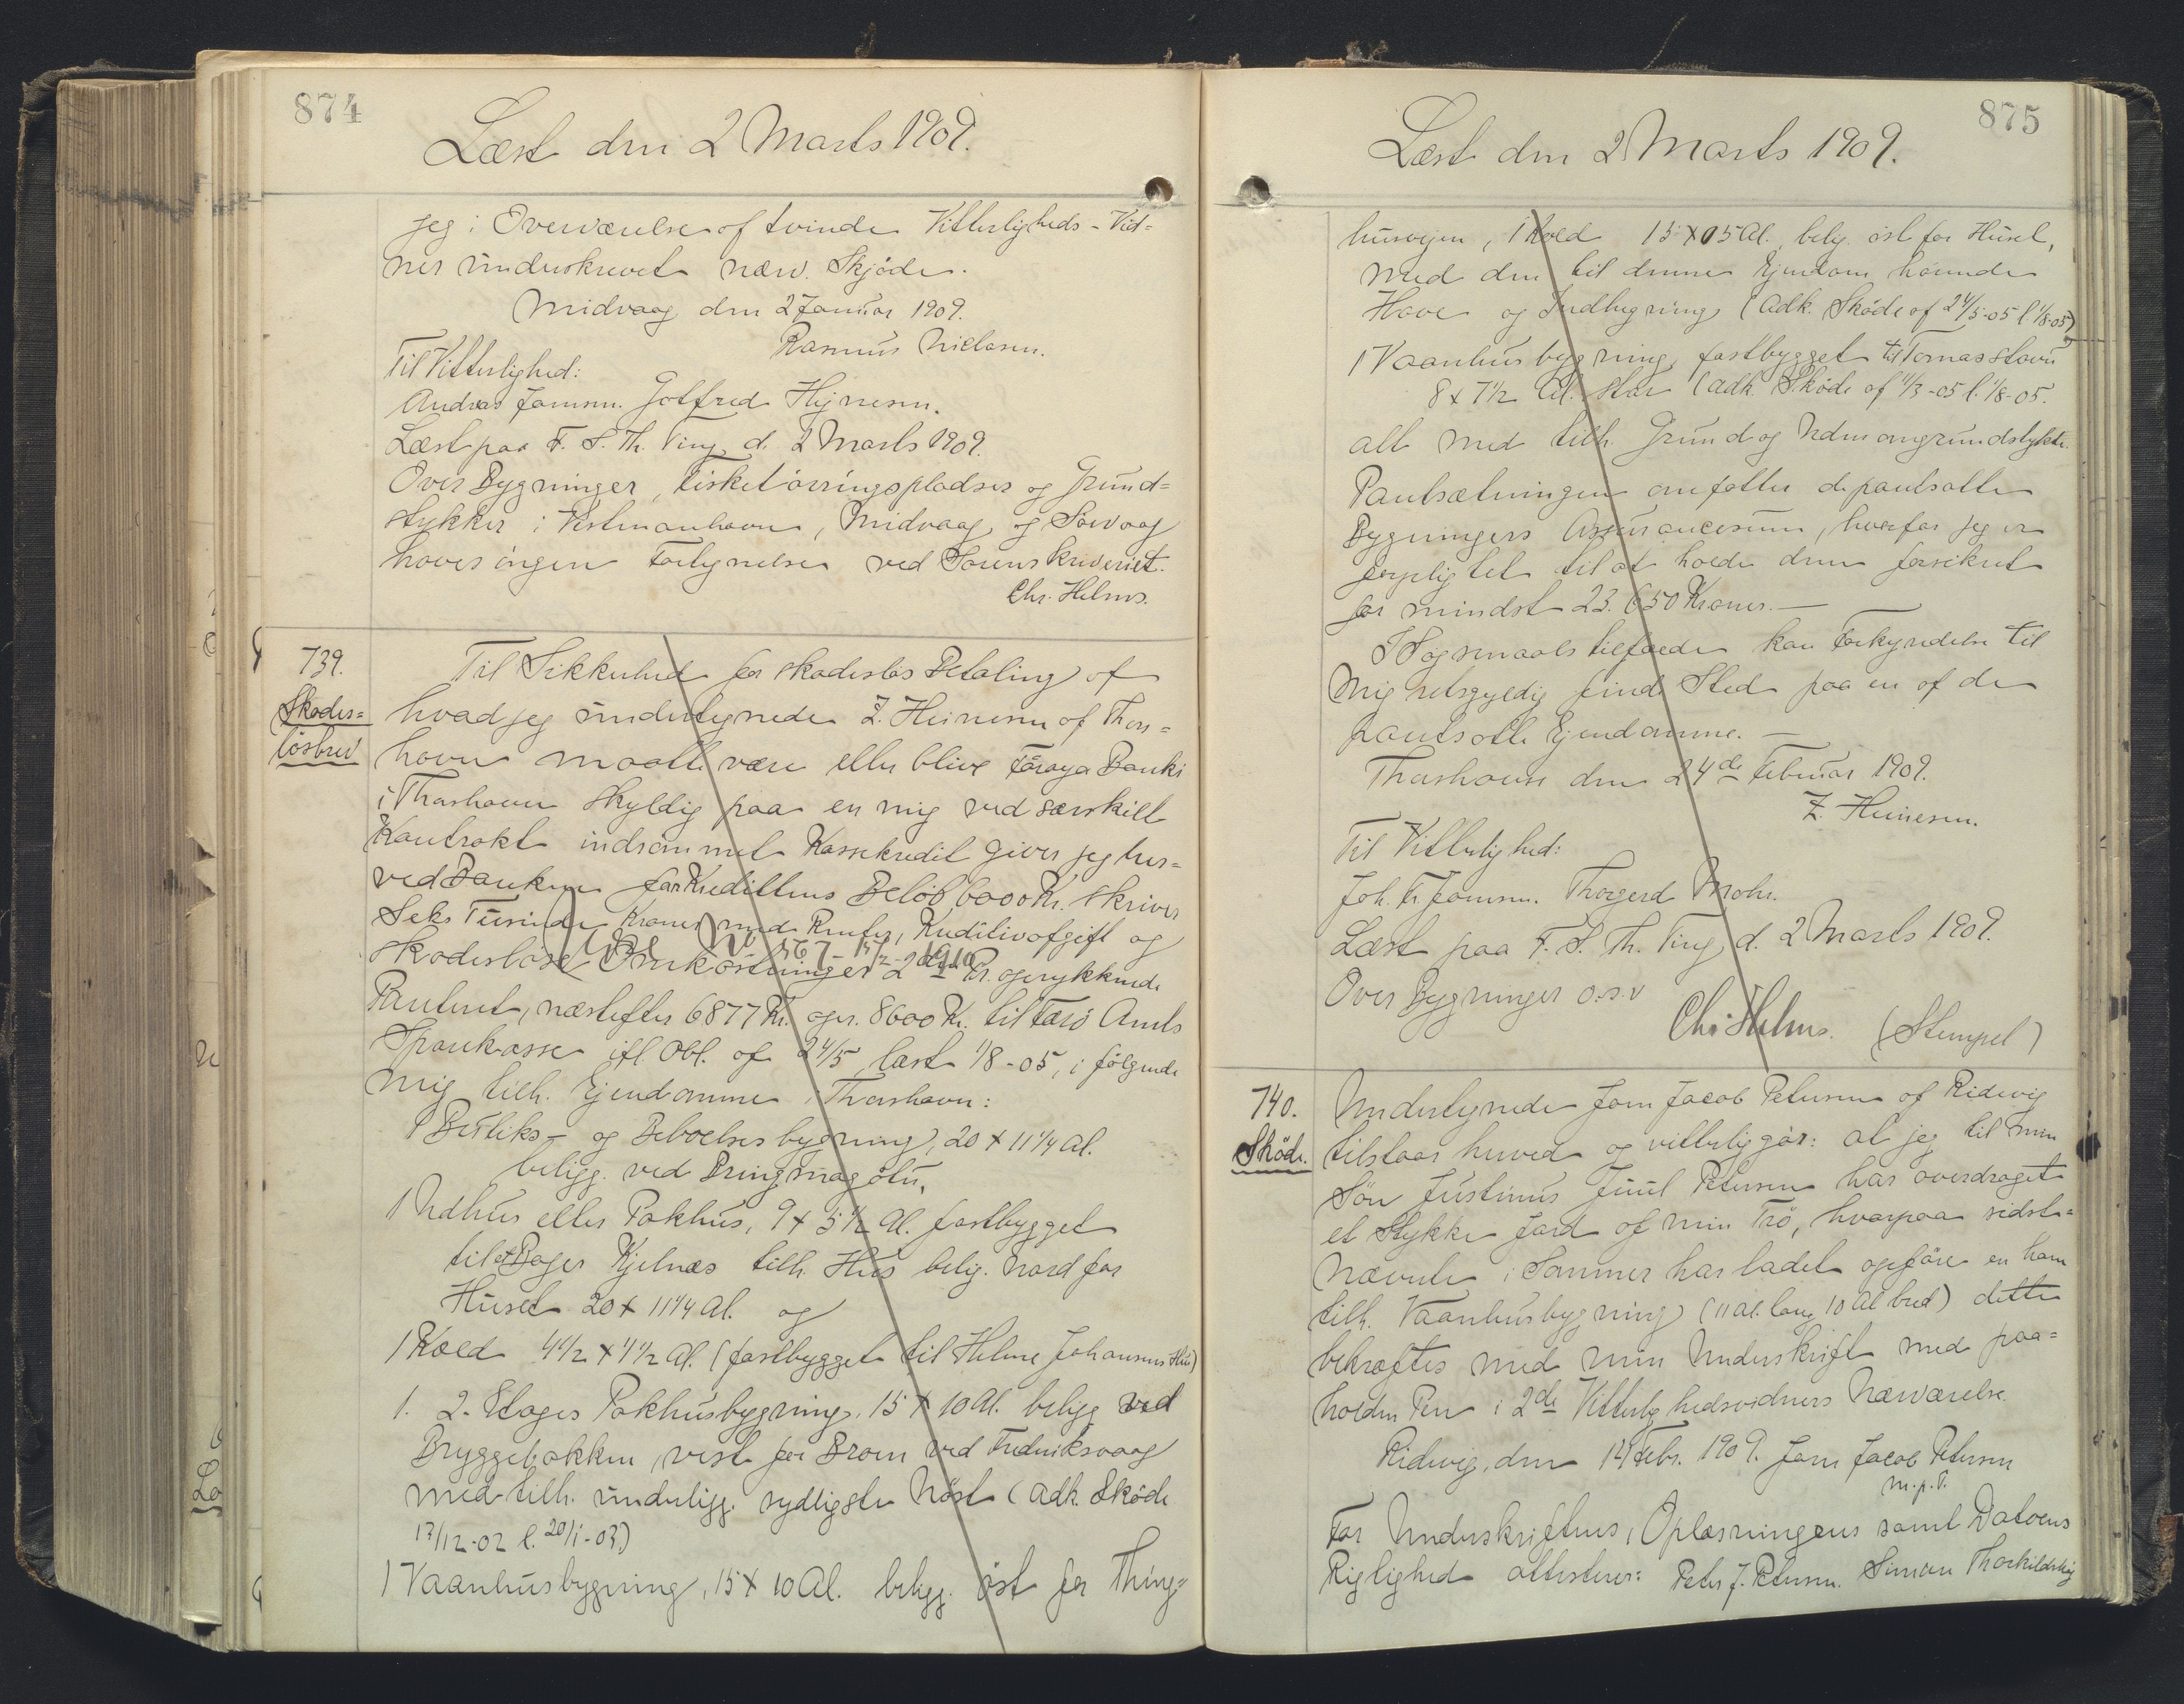 874
Læst den 2 Marts 1909.
jeg i Overværelse af tvinde Vitterligheds-Vid=
ner underskrevet nærv. Skjøde.
Midvaag den 2 Januar 1909.
Rasmus Nielsen.
Til Vitterlighed:
Andreas Joensen. Gotfred Hejnesen.
Læst paa F. S. Th. Ting d. 2 Marts 1909.
Over Bygninger, Fisketørringspladser og Grund=
stykker i Vestmanhavn, Midvaag og Sørvaag
haves ingen Forhynelse ved Sorenskriveriet.
Chr. Helms.
739.
Skades=
løsbrev
Til Sikkerhed for skadesløs Betaling af
hvad jeg undertegnede Z. Heinesen af Thors=
havn maatte være eller blive Føroya Banki
i Thorshavn skyldig paa en mig ved særskilt
Kontrakt indrømmet Kassekredit giver jeg her=
ved Banken for Kredittens Beløb 6000 Kr. skriver
Seks Tusinde Kroner med Renter, Kreditivafgift og
skadesløse Omkostninger 2den Pr. oprykkende
Panteret, næstefter 6877 Kr. opr. 8600 Kr. til Færø Amts
Sparekasse ifl. Obl. af 24/5 læst 1/8-05, i følgende
mig tilh. Ejendomme i Thorshavn:
1 Butiks- og Beboelsesbygning, 20 x 11 1/4 Al.
beligg. ved Bringsnagøtu,
1 Udhus eller Pakhus, 9 x 5 1/2 Al. fastbygget
til et Bager Kjelnæs tilh. Hus belig. Nord for
Huset 20 x 11 1/4 Al. og
1 Kæld 4 1/2 x 4 1/2 Al. (fastbygget til Helene Johansens Hus)
1. 2. Etages Pakhusbygning, 15 x 10 Al. beligg ved
Bryggebakken, vest for Broen ved Frederiksvaag
med tilh. underligg. sydligste Nøst (adk. Skøde
17/12-02 l. 20/1-03.)
1 Vaanhusbygning, 15 x 10 Al. beligg. øst for Thing=
875
Læst den 2 Marts 1909.
husvejen, 1 Kæld 15 x 05 Al. belig. øst for Huset,
med den til denne Ejendom hørende
Have og Indhegning (adk. Skøde af 24/5-05 l. 1/8-05)
1 Vaanhusbygning fastbygget til Tomasstovu
8 x 7 1/2 Al. stor (adk. Skøde af 1/3-05 l. 1/8-05.
alt med tilh. Grund og Udenomsgrundstykke.
Pantsætningen omfatter de pantsatte
Bygningers Assurancesum, hvorfor jeg er
forpligtet til at holde dem forsikret
for mindst 23.650 Kroner. —
I Søgsmaalstilfælde kan Forkyndelse til
mig retsgyldig finde Sted paa en af de
pantsatte Ejendomme. —
Thorshavn den 24de Februar 1909.
Z. Heinesen.
Til Vitterlighed:
Joh. Fr. Joensen. Thorgerd Mohr.
Læst paa F. S. Th. Ting d. 2 Marts 1909.
Over Bygninger o.s.v
Chr. Helms. (Stempel)
740.
Skøde.
Undertegnede Joen Jacob Petersen af Ridevig
tilstaar herved og vitterliggør: at jeg til min
Søn Justinus Juul Petersen har overdraget
et Stykke Jord af min Trø, hvorpaa sidst=
nævnte i Sommer har ladet opføre en ham
tilh. Vaanhusbygning (11 al. lang 10 Al bred) dette
bekræftes med min Underskrift med paa=
holden Pen i 2de Vitterlighedsvidners Nærværelse.
Ridevig, den 14 Febr. 1909. Joen Jacob Petersen
m. p. P.
For Underskriftens, Oplæsningens samt Datoens
Rigtighed attesterer: Peter J. Petersen. Simon Thorkildshøj